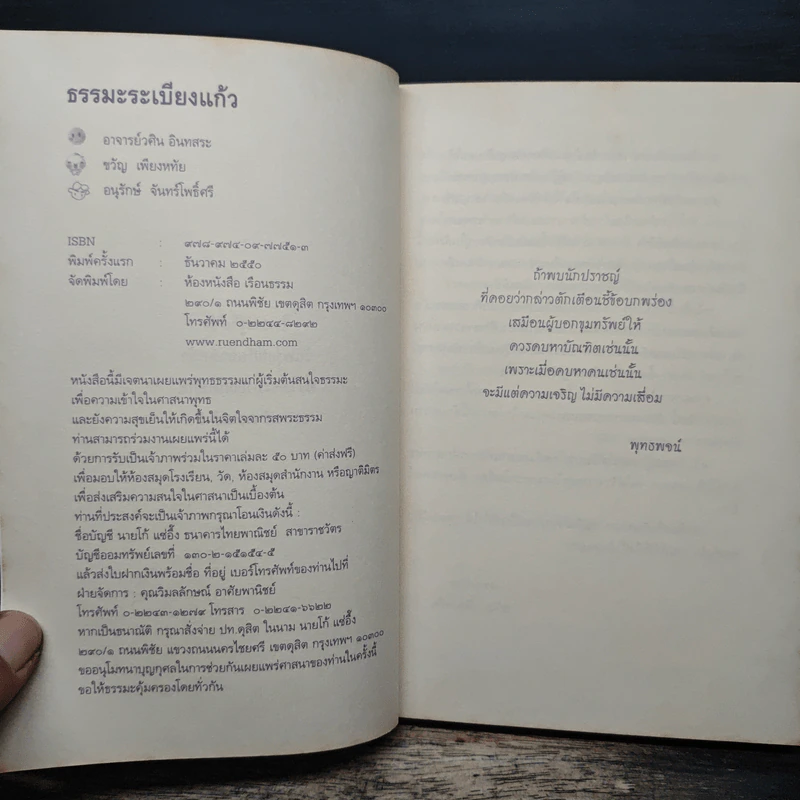 ธรรมะระเบียงแก้ว
อาจารย์วศิน อินทสระ
ขวัญ เพียงหทัย
อนุรักษ์ จันทร์โพธิ์ศรี
ISBN : ๙๗๘-๙๗๔-๐๙-๗๗๕๑-๓
พิมพ์ครั้งแรก : ธันวาคม ๒๕๕๐
จัดพิมพ์โดย : ห้องหนังสือ เรือนธรรม
๒๙๐/๑ ถนนพิชัย เขตดุสิต กรุงเทพฯ ๑๐๓๐๐
โทรศัพท์ ๐-๒๒๔๔-๘๒๙๒
www.ruendham.com
หนังสือนี้มีเจตนาเผยแพร่พุทธธรรมแก่ผู้เริ่มต้นสนใจธรรมะ
เพื่อความเข้าใจในศาสนาพุทธ
และยังความสุขเย็นให้เกิดขึ้นในจิตใจจากรสพระธรรม
ท่านสามารถร่วมงานเผยแพร่นี้ได้
ด้วยการรับเป็นเจ้าภาพร่วมในราคาเล่มละ ๕๐ บาท (ค่าส่งฟรี)
เพื่อมอบให้ห้องสมุดโรงเรียน, วัด, ห้องสมุดสำนักงาน หรือญาติมิตร
เพื่อส่งเสริมความสนใจในศาสนาเป็นเบื้องต้น
ท่านที่ประสงค์จะเป็นเจ้าภาพกรุณาโอนเงินดังนี้ :
ชื่อบัญชี นายโก้ แซ่อึ้ง ธนาคารไทยพาณิชย์ สาขาราชวัตร
บัญชีออมทรัพย์เลขที่ ๑๓๐-๒-๑๕๑๕๔-๕
แล้วส่งใบฝากเงินพร้อมชื่อ ที่อยู่ เบอร์โทรศัพท์ของท่านไปที่
ฝ่ายจัดการ : คุณวิมลลักษณ์ อาศัยพานิชย์
โทรศัพท์ ๐-๒๒๔๓-๑๒๗๙ โทรสาร ๐-๒๒๔๑-๖๖๒๒
หากเป็นธนาณัติ กรุณาสั่งจ่าย ปท.ดุสิต ในนาม นายโก้ แซ่อึ้ง
๒๙๐/๑ ถนนพิชัย แขวงถนนนครไชยศรี เขตดุสิต กรุงเทพฯ ๑๐๓๐๐
ขออนุโมทนาบุญกุศลในการช่วยกันเผยแพร่ศาสนาของท่านในครั้งนี้
ขอให้ธรรมะคุ้มครองโดยทั่วกัน
ถ้าพบนักปราชญ์
ที่คอยว่ากล่าวตักเตือนชี้ข้อบกพร่อง
เสมือนผู้บอกขุมทรัพย์ให้
ควรคบหาบัณฑิตเช่นนั้น
เพราะเมื่อคบหาคนเช่นนั้น
จะมีแต่ความเจริญ ไม่มีความเสื่อม
พุทธพจน์